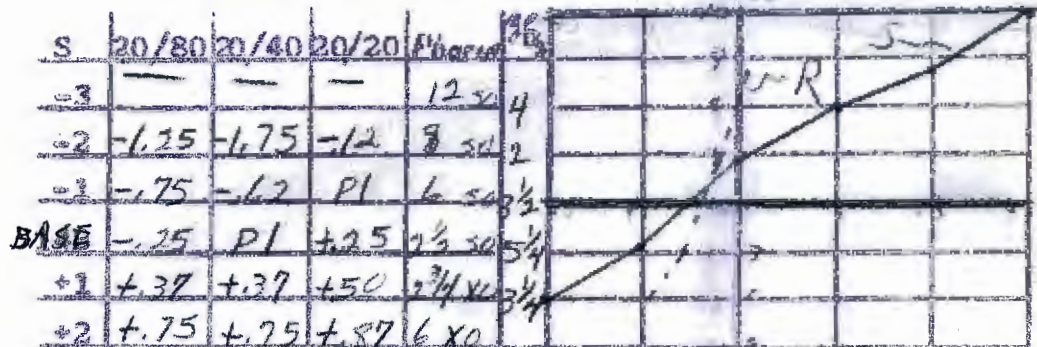 S 20/80 20/40 20/20
-3 — — — 12 so 4
-2 -1.25 -1.75 -.12 8 so 2
-1 -.75 -.62 Pl 6 so 3½
BASE -.25 Pl +.25 2½ so 5¼
+1 +.37 +.37 +.50 2¾ xo 3¼
+2 +.75 +.75 +.87 6 XO
R